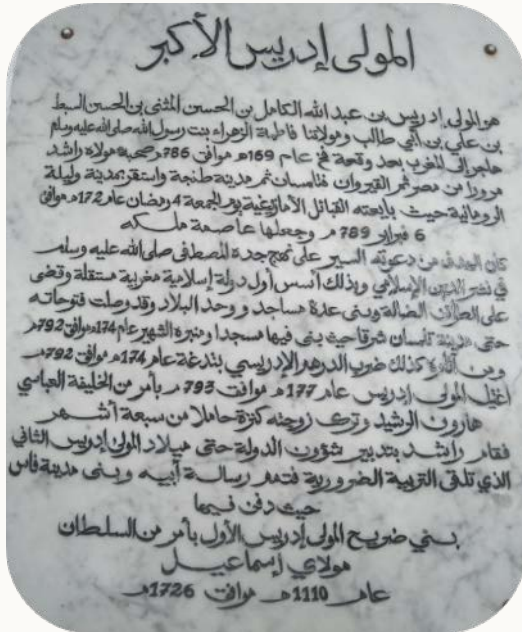 المولى إدريس الأكبر
هو المولى إدريس بن عبد الله الكامل بن الحسن المثنى بن الحسن السبط
بن علي بن أبي طالب ومولاتنا فاطمة الزهراء بنت رسول الله صلى الله عليه وسلم
هاجر الى المغرب بعد وقعة فخ عام 169هـ موافق 786م صحبة مولاه راشد
مرورا من مصر ثم القيروان فتلمسان ثم مدينة طنجة واستقر بمدينة وليلة
الرومانية حيث بايعته القبائل الأمازيغية يوم الجمعة 4 رمضان عام 172هـ موافق
6 فبراير 789م وجعلها عاصمة ملكه
كان الهدف من دعوته السير على نهج جده المصطفى صلى الله عليه وسلم
في نشر الدين الإسلامي وبذلك أسس أول دولة إسلامية مغربية مستقلة وقضى
على الطوائف الضالة وبنى عدة مساجد ووحد البلاد وقد وصلت فتوحاته
حتى مدينة تلمسان شرقا حيث بنى فيها مسجدا ومنبره الشهير عام 174هـ موافق 792م
ومن آثاره كذلك ضرب الدرهم الإدريسي بتدغة عام 174هـ موافق 792م
اغتيل المولى إدريس عام 177هـ موافق 793م بأمر من الخليفة العباسي
هارون الرشيد وترك زوجته كنزة حاملا من سبعة أشهر
فقام راشد بتدبير شؤون الدولة حتى ميلاد المولى إدريس الثاني
الذي تلقى التربية الضرورية فتمم رسالة أبيه وبنى مدينة فاس
حيث دفن فيها
بني ضريح المولى إدريس الأول بأمر من السلطان
مولاي إسماعيل
عام 1110هـ موافق 1726م